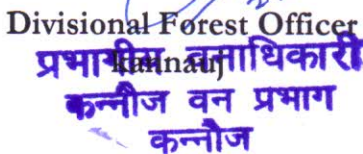 Divisional Forest Officer
Kannauj
प्रभागीय वनाधिकारी
कन्नौज वन प्रभाग
कन्नौज